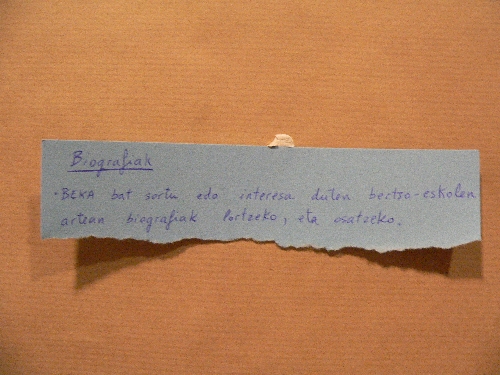 Biografiak
• BEKA bat sortu edo interesa duten bertso-eskolen
artean biografiak lortzeko, eta osatzeko.